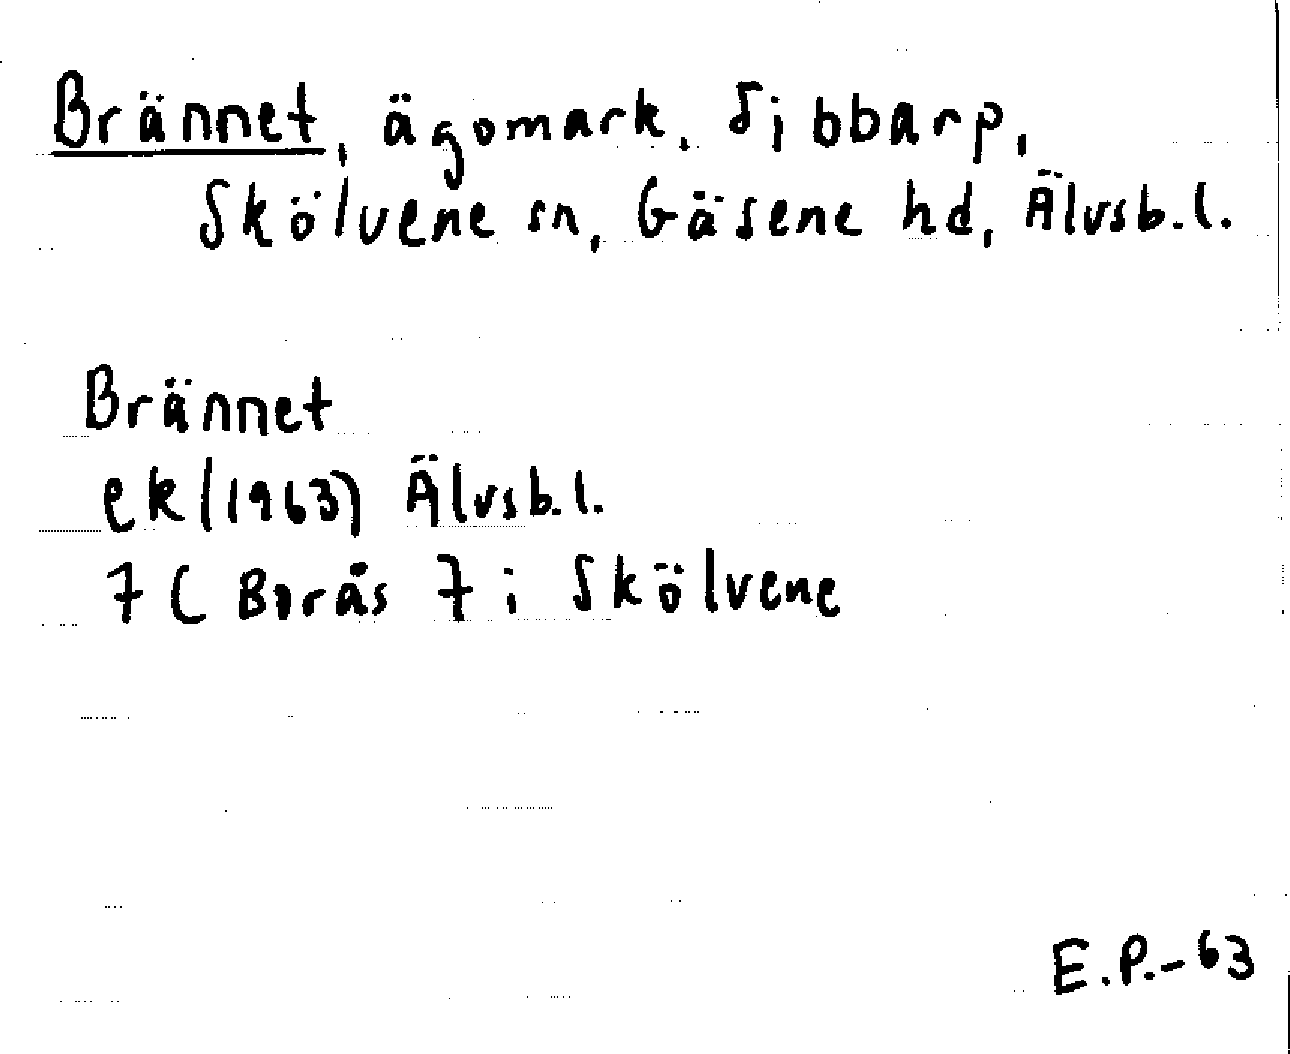 Brännet, ägomark, Sibbarp,
Skölvene sn, Gäsene hd, Älvsb.l.
Brännet
ek (1963) Älvsb.l.
7 C Borås 7 i Skölvene
E.P.-63